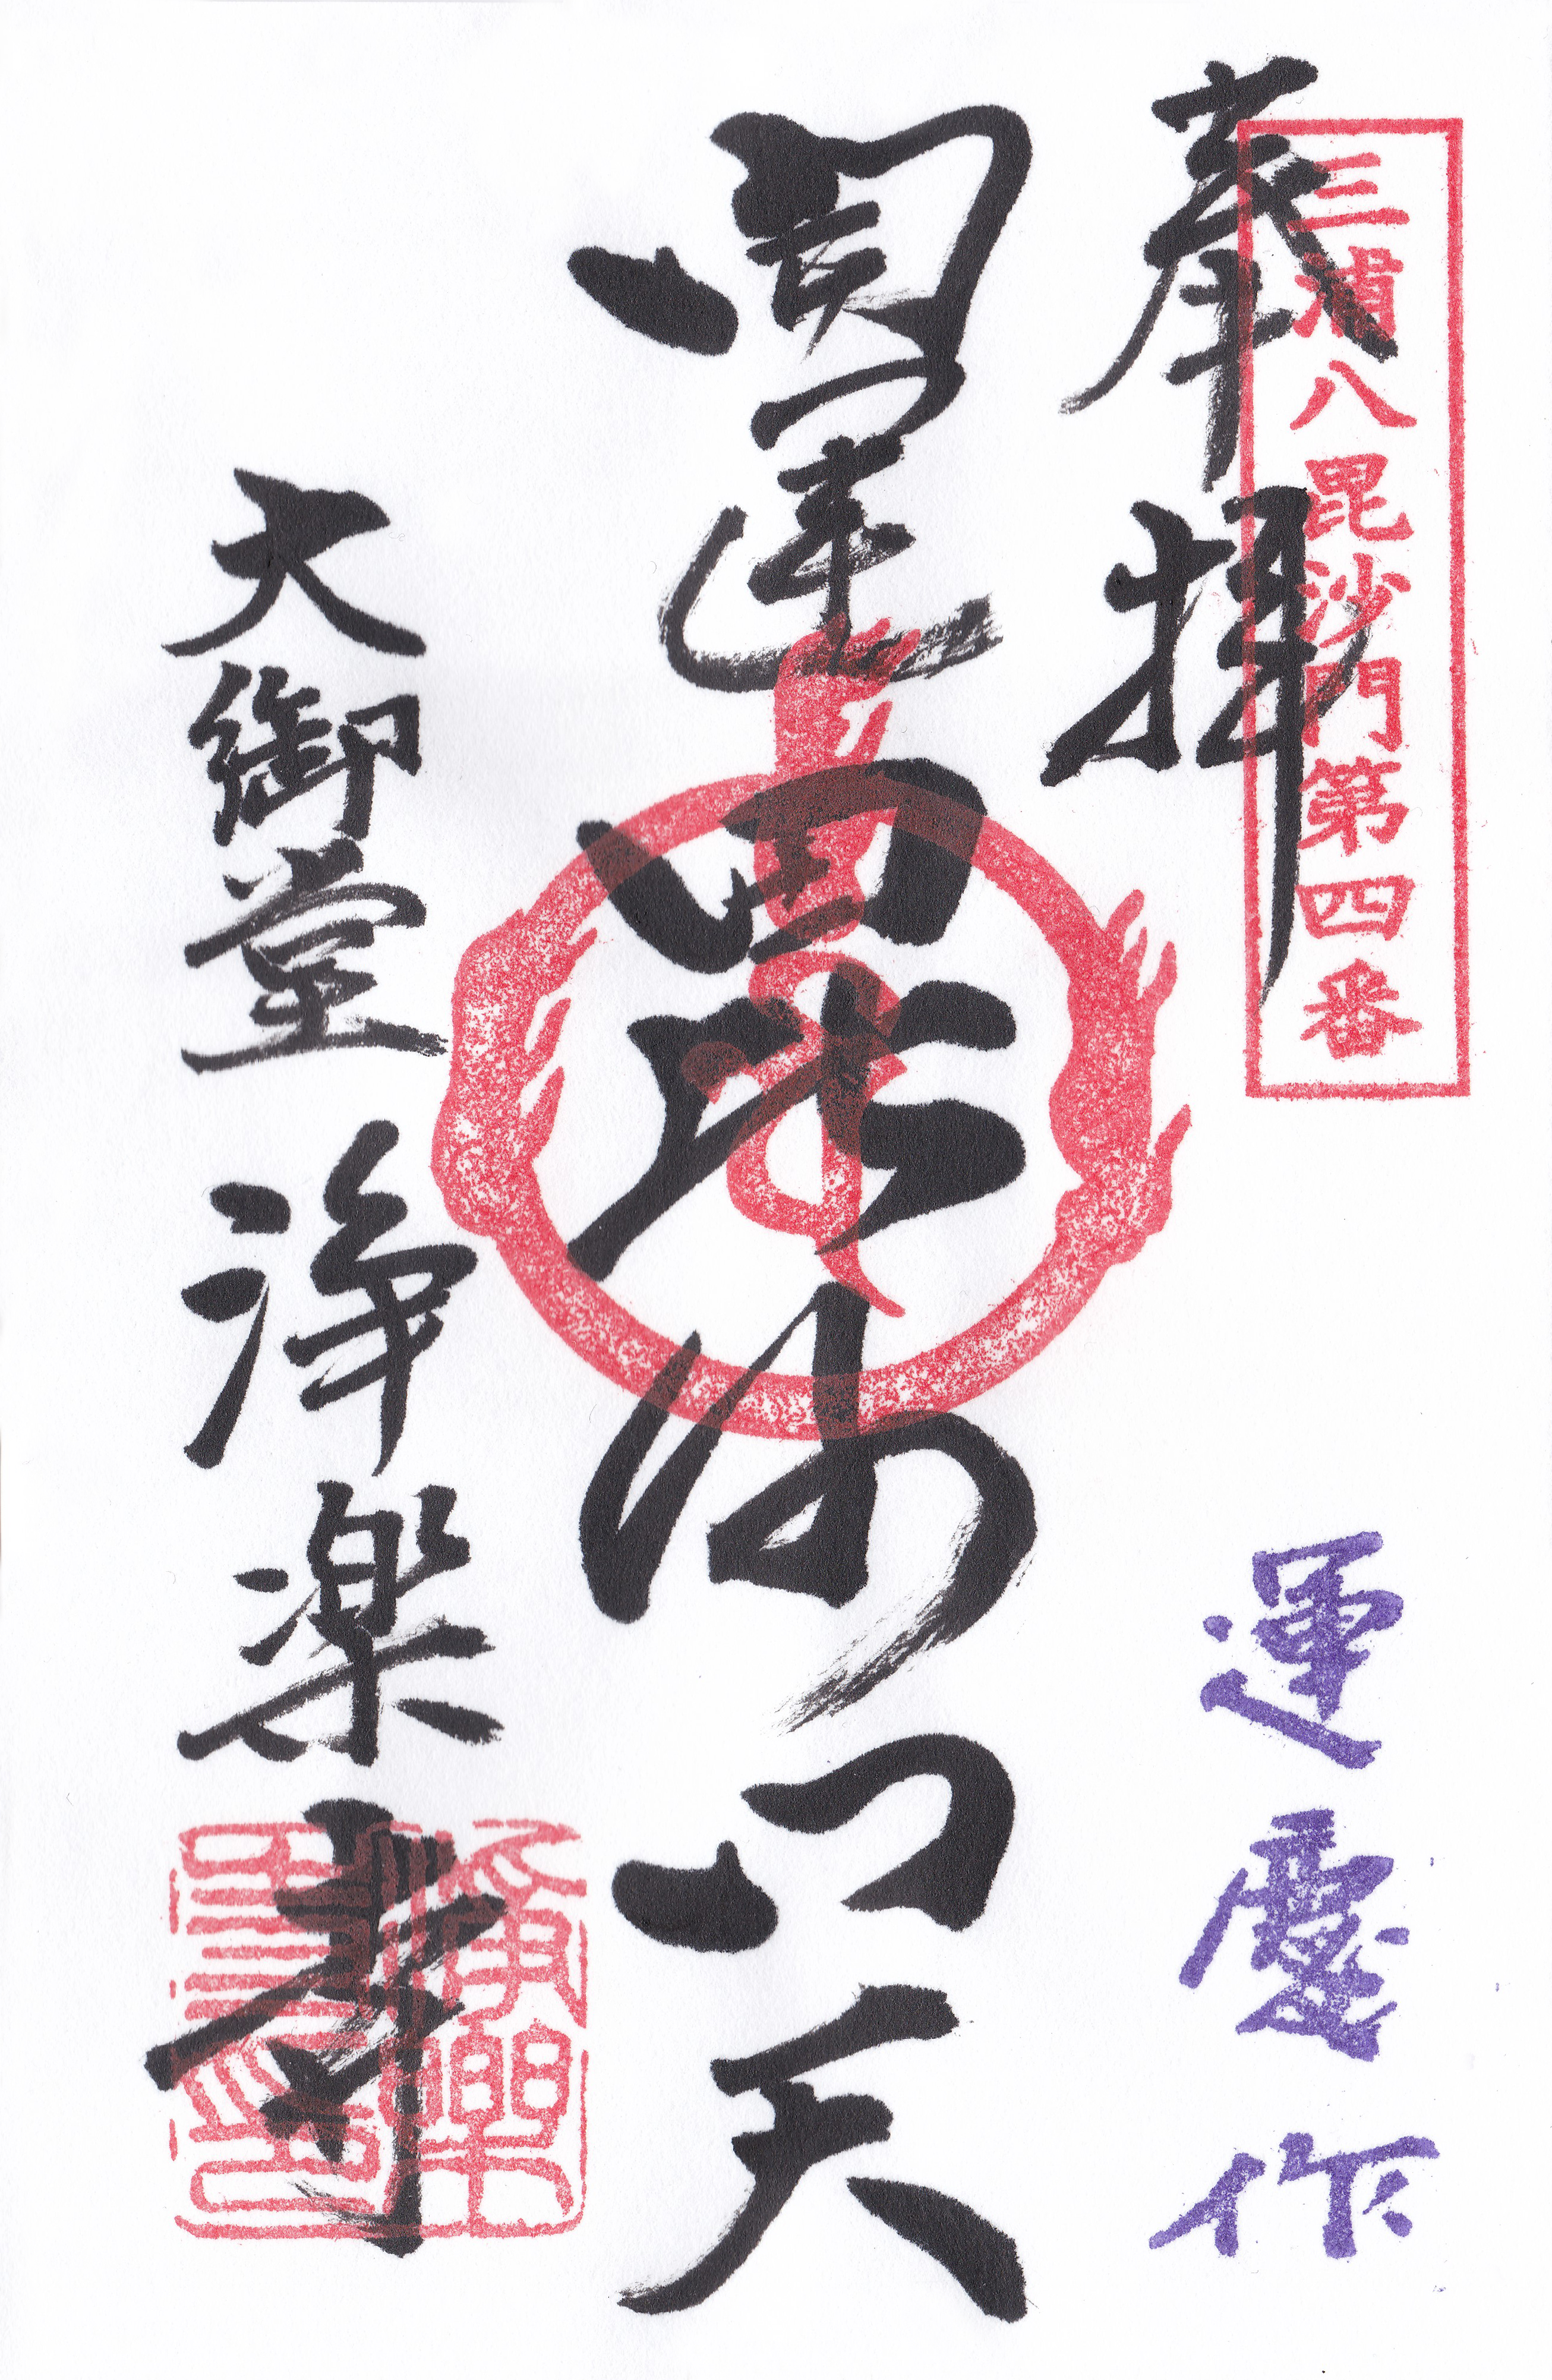 三浦八毘沙門第四番
奉拝
運慶作
開運毘沙門天
大御堂 浄楽寺